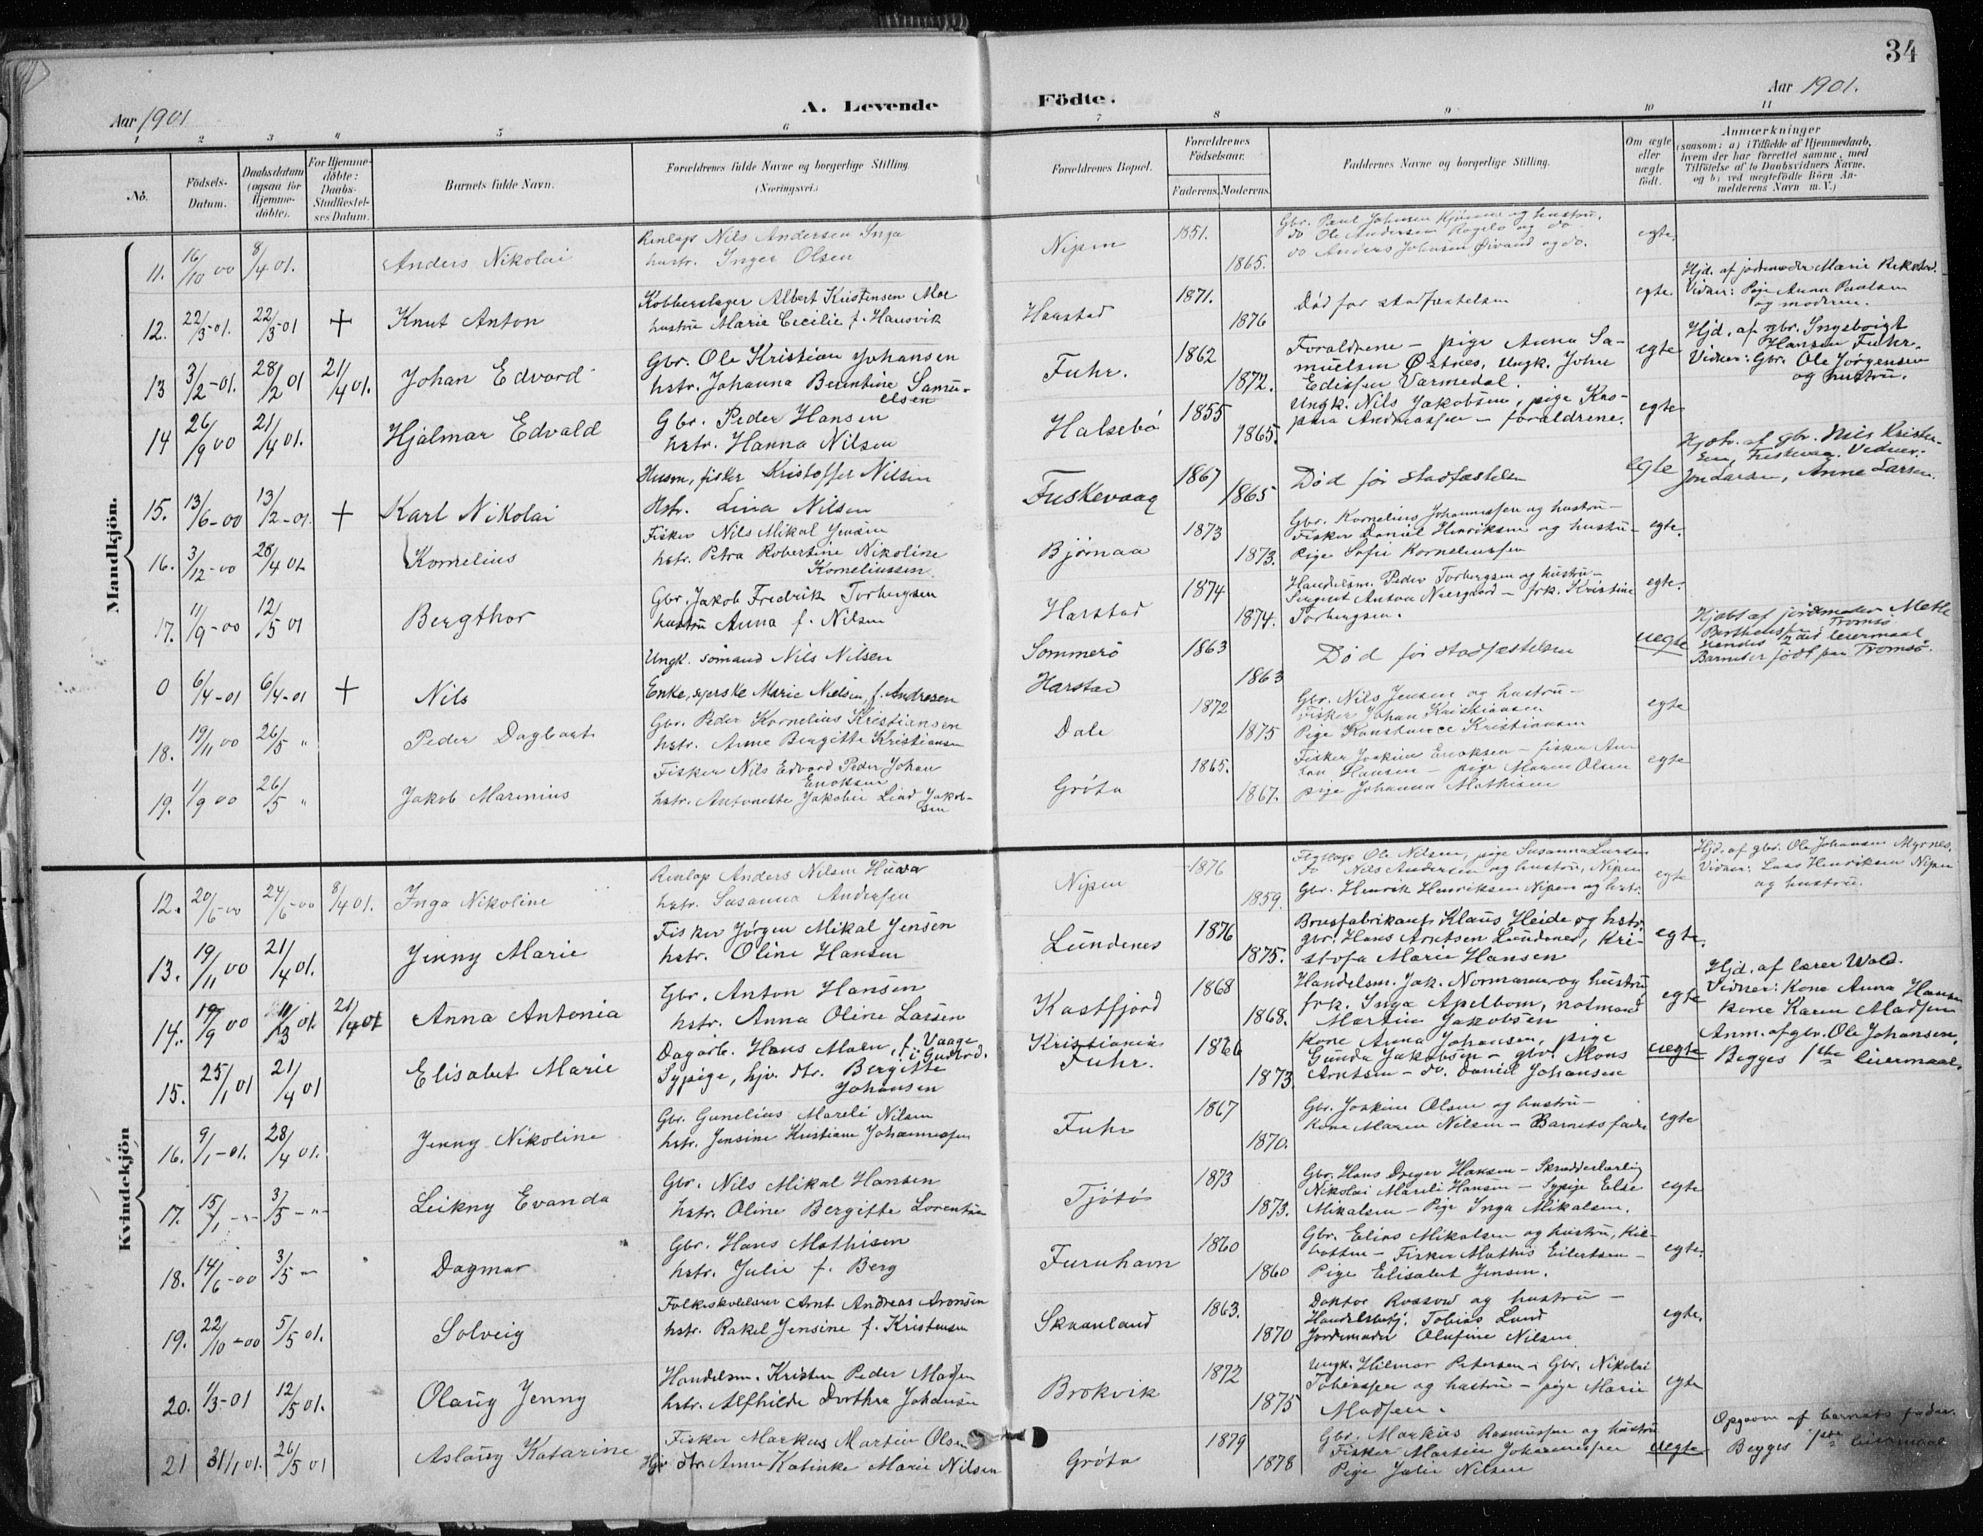 34
Aar 1901
A. Levende
Födte.
Aar 1901.
1 2 3 4 5 6 7 8 9 10 11
No.
Födsels-Datum.
Daabsdatum (ogsaa for Hjemme-döbte).
For Hjemme-döbte: Daabs-Stadfæstel-ses Datum.
Barnets fulde Navn.
Forældrenes fulde Navne og borgerlige Stilling. (Næringsvei.)
Forældrenes Bopæl.
Forældrenes Födselsaar.
Faderens. Moderens.
Faddernes Navne og borgerlige Stilling.
Om ægte eller uægte födt.
Anmærkninger
(saasom: a) i Tilfælde af Hjemmedaab,
hvem der har forrettet samme, med
Tilföielse af to Daabsvidners Navne,
og b) ved uægtefödte Börn An-
melderens Navn m. V.)
Mandkjön.
11. 16/10 00 8/4 01. Anders Nikolai
Nils Andersen Inga
hustr. Inger Olsen
Nipen 1851. 1865.
Gbr. Paul Johnsen og hustru,
do Ole Andersen og do
do Anders Johnsen og do.
egte.
12. 22/3-01. 22/3-01 + Knut Anton
Kobberslager Albert Kristensen Moe
hustru Marie Cecilie f. Hansvik
Harstad 1871. 1876
Død før stadfæstelsen
egte
Hjd. af jordemoder Marie
Vidner: Pige Anna Paulsen
og moderen.
13 3/2-01. 28/2 01 21/4 01. Johan Edvard
Gbr. Ole Kristian Johansen
hstr. Johanna Berntine Samu-
elsen
Fuhr. 1862 1872.
Forældrene - pige Anna Sa-
muelsen Østnes, Ungk. John
Edissen Varmedal.
egte
Hjd. af gbr. Ingebrigt
Hansen Fuhr.
Vidner: Gbr. Ole Jørgensen
og hustru.
14 26/9 00 21/4 01. Hjalmar Edvald
Gbr. Peder Hansen
hstr. Hanna Nilsen
Halsebø 1855 1865.
Ungk. Nils Jakobsen, pige
Andreassen - forældrene.
egte
15. 13/6-00 13/2-01. + Karl Nikolai
Husm, fisker Kristoffer Nilsen
Hstr. Lina Nilsen
Fuskevaag 1867 1865
Død før stadfæstelsen
egte
af gbr. Nils Kristen-
sen, Fuskevaag. Vidner:
Jon Larsen, Anne Larsen.
16. 3/12-00 28/4 01. Kornelius
Fisker Nils Mikal Jensen
hstr. Petra Robertine Nikoline
Korneliussen.
Bjørnaa 1873 1873.
Gbr. Kornelius Johannessen og hustru -
Fisker Daniel Henriksen og hustru -
Pige Sofie Korneliussen
egte.
17. 11/9-00 12/5 01 Bergthor
Gbr. Jakob Fredrik Torbergsen
hustru Anna f. Nilsen
Harstad 1874 1874.
Handelsm. Peder Torbergsen og hustru -
Sergent Anton - frk. Kristine
Torbergsen.
egte.
0 6/4-01 6/4-01 + Nils
Ungk. sømand Nils Nilsen
Enke, syerske Marie Nielsen, f. Andresen
Sommerø
Harstad 1863 1863
Død før stadfæstelsen
uegte
af jordemoder Mette
Tromsø
leiermaal.
Barnet er født paa Tromsø.
18. 19/11 00 26/5 " Peder Dagbart
Gbr. Peder Kornelius Kristiansen
hstr. Anne Bergitte Kristiansen
Dale 1872 1875
Gbr. Nils Jensen og hustru -
Fisker Johan Kristiansen
Pige Konstance Kristiansen
egte
19. 1/9 00 26/5 " Jakob Marinius
Fisker Nils Edvard Peder Johan
Enoksen
hstr. Antonette Jakobie Lind Jakob-
sen
Grøta 1865. 1867.
Fisker Joakim Enoksen - fisker An-
ton Hansen - pige Maren Olsen
pige Johanna Mathisen
egte
Kvindekjön
12. 20/6-00 24/6-00 8/4 01. Inga Nikoline
Anders Nilsen
hstr. Susanna Andersen
Nipen 1876 1859.
Ole Nilsen, pige Susanna Larsen
do Nils Andersen og hustru, Nipen
Gbr. Henrik Henriksen Nipen og hstr.
egte
Hjd. af gbr. Ole Johansen Myrnes.
Vidner: Lars Henriksen Nipen
og hustru.
13. 19/11 00 21/4 01. Jenny Marie
Fisker Jørgen Mikal Jensen
hstr. Oline Hansen
Lundenes 1876 1875.
Brusfabrikant Klaus Heide og hstr.
gbr. Hans Arntsen Lundenes, Kri-
stofa Marie Hansen
egte.
14. 19/9 00 01. 21/4 01 Anna Antonia
Gbr. Anton Hansen
hstr. Anna Oline Lassen
Kastfjord 1868 1868.
Handelsm. Jak. Normann og hustru
frk. Inga Apelbom, notmand
Martin Jakobsen
egte
Hjd. af lærer Wold.
Vidner: Kone Anna Hansen
kone Karen Madsen
15. 25/1 01 21/4 01 Elisabet Marie
Dagarb. Hans Moen, f. Vaage
i Gudbrd.
Sypige, hjv. dtr. Bergitte
Johansen
Kristiania
Fuhr. 1866 1873
Kone Anna Johansen, pige
Gunda Jakobsen - gbr. Mons
Arntsen - do. Daniel Johansen
uegte
Anm. af gbr. Ole Johansen,
Begges 1ste leiermaal.
16. 9/1-01. 28/4 01. Jenny Nikoline
Gbr. Gunelius Mareli Nilsen
hstr. Jensine Kristiane Johannessen
Fuhr 1867 1870.
Gbr. Joakim Olsen og hustru -
Kone Maren Nilsen - Barnets fader
egte
17. 15/1 - "- 3/5 - "- Leikny Evanda
Gbr. Nils Mikal Hansen
hstr. Oline Bergitte Lorentsen
Tjøtø 1873 1873.
Gbr. Hans Dreyer Hansen - Skrædderlærling
Nikolai Mareli Hansen - Sypige Else
Mikalsen - Pige Inga Mikalsen.
egte
18. 14/6-00 3/5 - Dagmar
Gbr. Hans Mathisen
hstr. Julie f. Berg
Furuhavn 1860 1860
Gbr. Elias Mikalsen og hustru, Kil-
botten - Fisker Mathis Eilertsen -
Pige Elisabet Jensen.
egte.
19. 22/10-00 5/5 01. Solveig
Folkeskolelærer Arnt Andreas Aronsen
hstr. Rakel Jensine f. Kristensen
Skaanland 1863. 1870
Doktor Rossow og hustru -
Handelsbetj. Tobias Lund
Jordemoder Olufine Nilsen
egte.
20. 1/3-01 12/5 01. Olaug Jenny
Handelsm. Kristen Peder Madsen
hstr. Alfhilde Dorthea Johansen
Brokvik 1872 1875
Ungk. Hilmar Petersen - Gbr. Nikolai
Tobiassen og hustru - pige Marie
Madsen.
egte
21 31/1 01. 26/5 01 Aslaug Katarine
Fisker Markus Martin Olsen
Hjv. dtr. Anne Katinke Marie Nilsen
Grøta 1879 1878
Gbr. Markus Rasmussen og hustru
Fisker Martin Johannessen
Pige Julie Nilsen
uegte
Opgaven af barnets fader.
Begges 1ste leiermaal